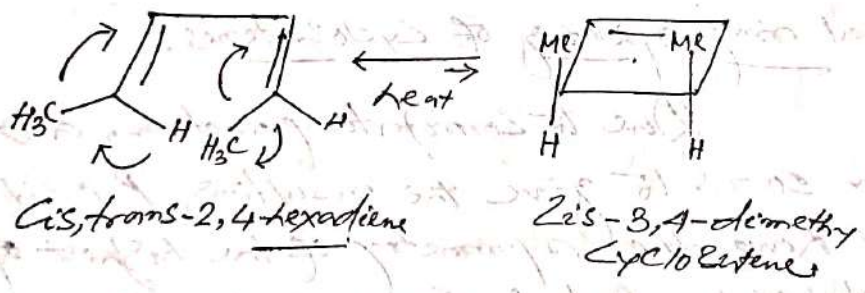 Me Me
H₃C H H₃C H heat
H H
Cis, trans-2,4-hexadiene Cis-3,4-dimethy
Cyclobutene